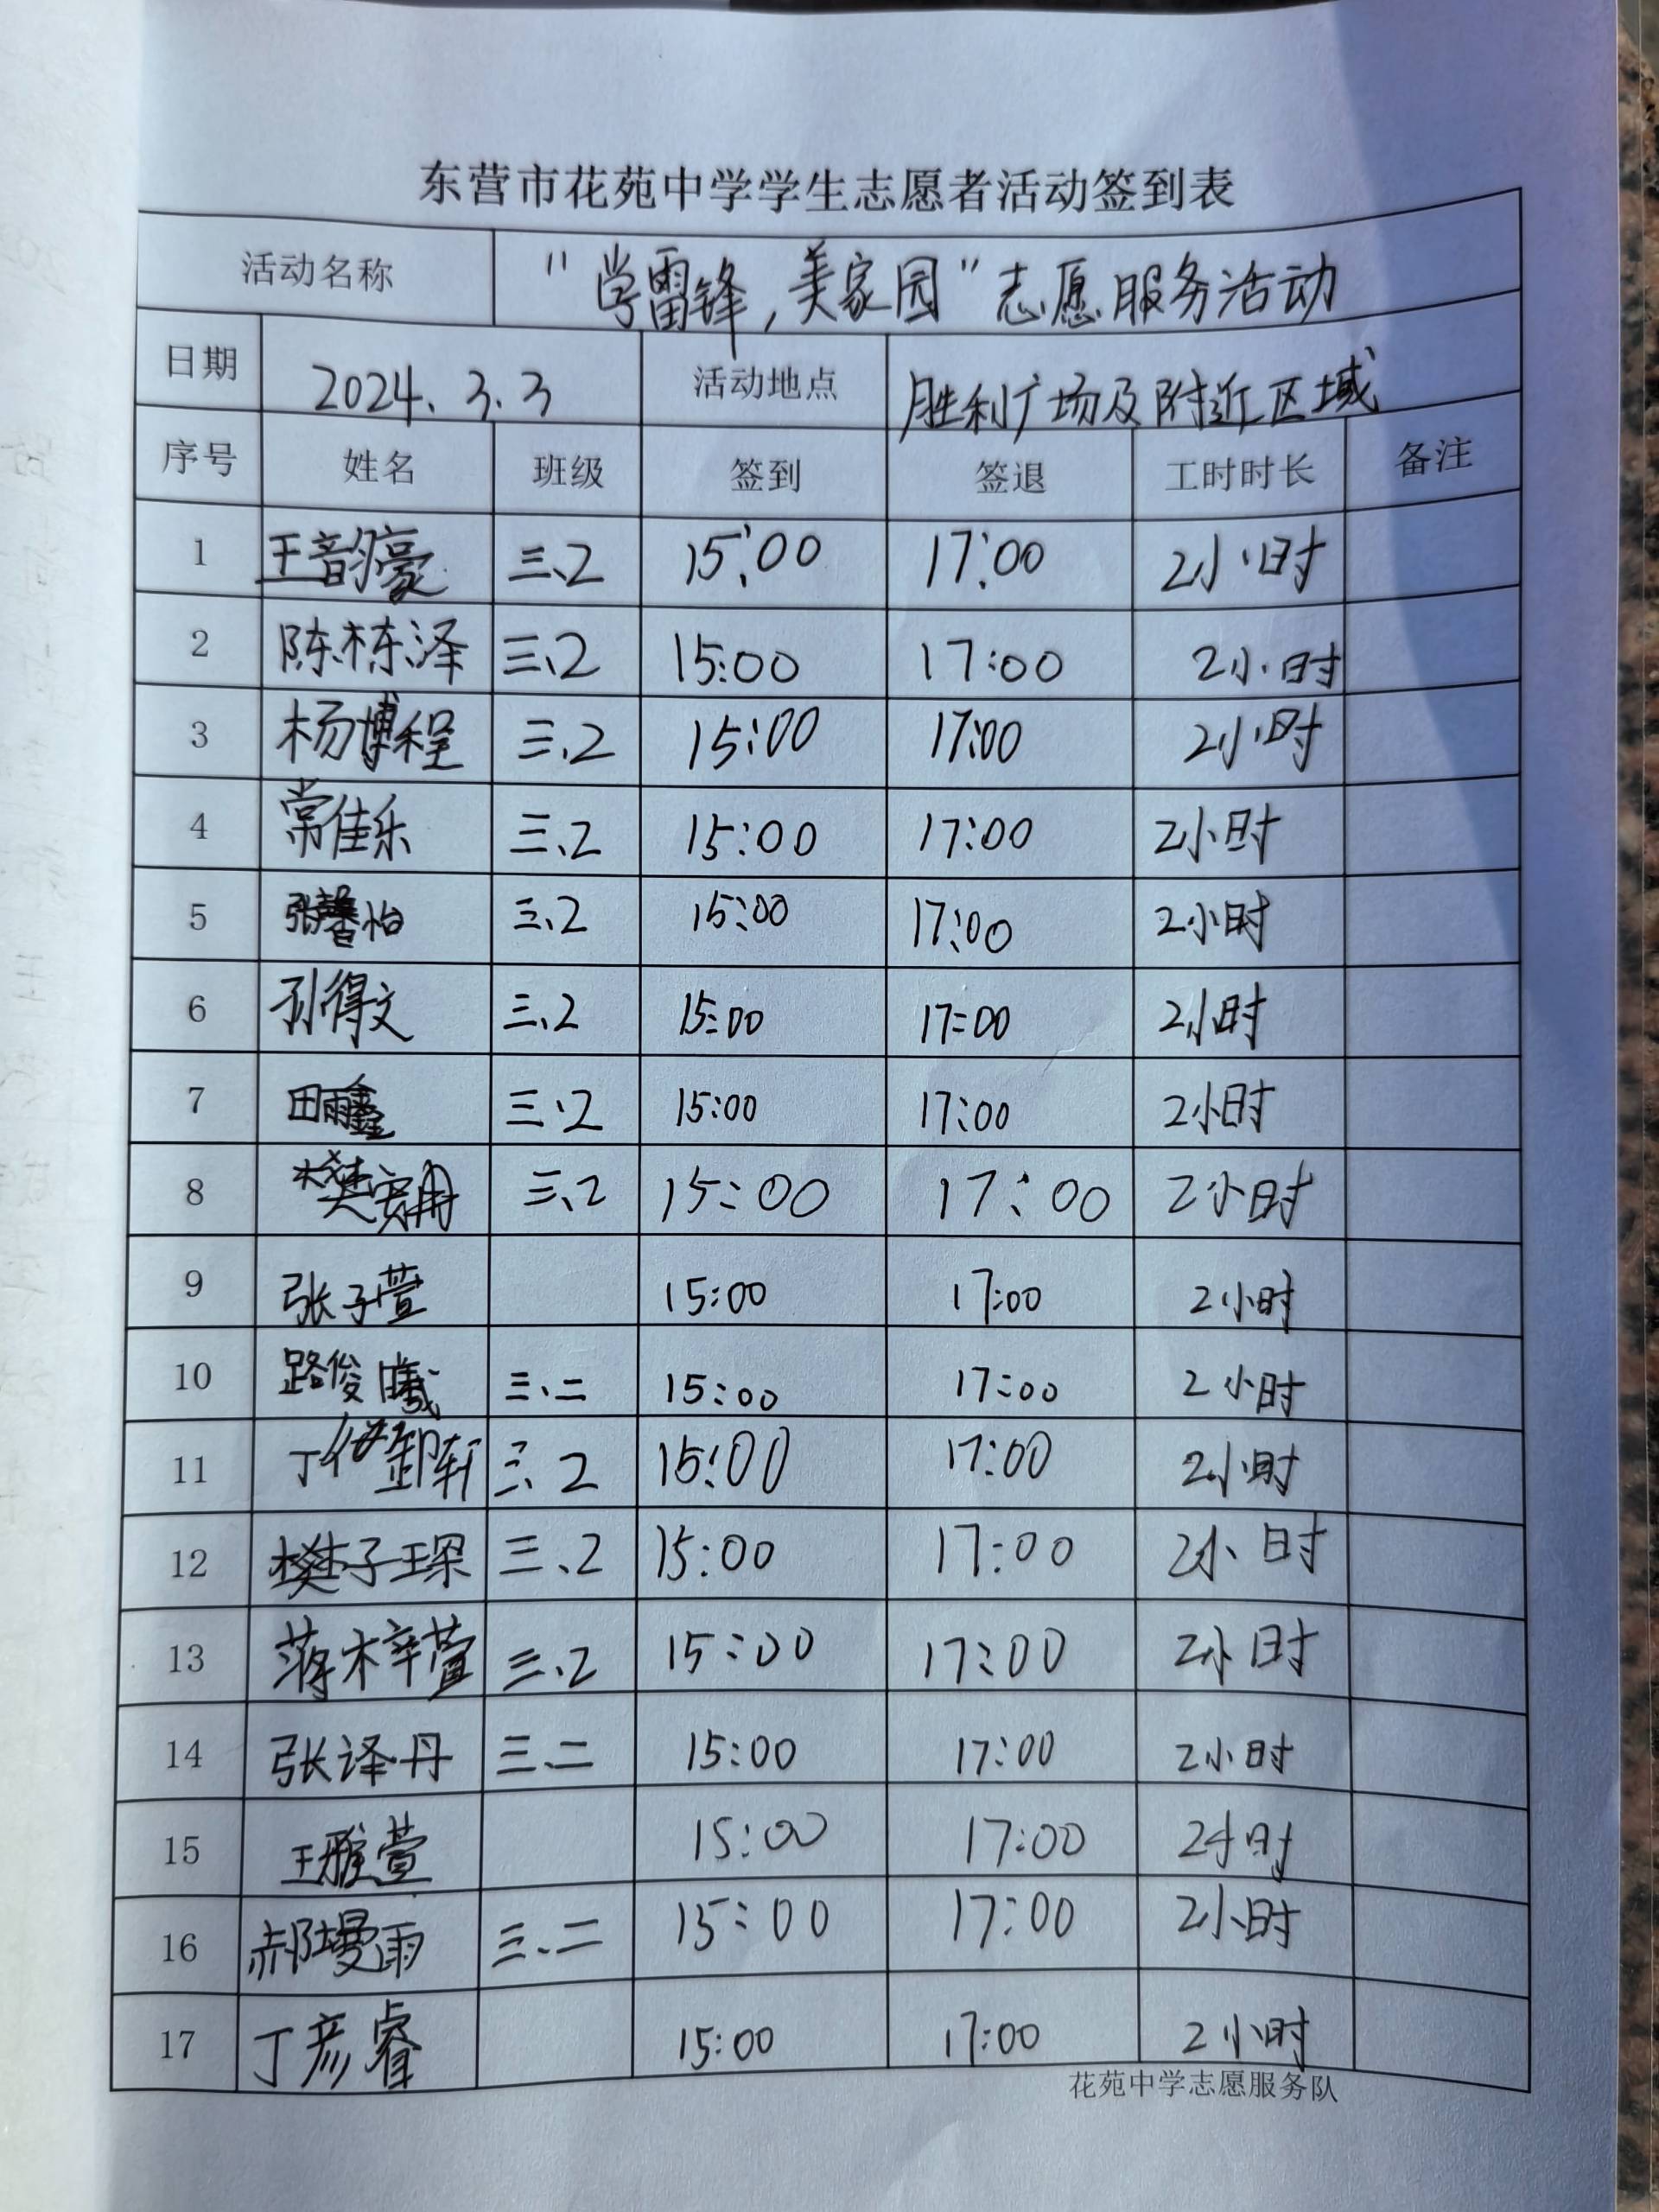 东营市花苑中学学生志愿者活动签到表
活动名称 "学雷锋,美家园"志愿服务活动
日期 2024.3.3 活动地点 胜利广场及附近区域
序号 姓名 班级 签到 签退 工时时长 备注
1 王韵豪 三、2 15:00 17:00 2小时
2 陈栋泽 三、2 15:00 17:00 2小时
3 杨博程 三、2 15:00 17:00 2小时
4 常佳乐 三、2 15:00 17:00 2小时
5 张馨怡 三、2 15:00 17:00 2小时
6 孙得文 三、2 15:00 17:00 2小时
7 田雨鑫 三、2 15:00 17:00 2小时
8 三、2 15:00 17:00 2小时
9 张子萱 15:00 17:00 2小时
10 路俊曦 三、二 15:00 17:00 2小时
11 三、2 15:00 17:00 2小时
12 樊子琛 三、2 15:00 17:00 2小时
13 蒋梓萱 三、2 15:00 17:00 2小时
14 张译丹 三、二 15:00 17:00 2小时
15 王雅萱 15:00 17:00 2小时
16 郝墁雨 三、二 15:00 17:00 2小时
17 丁彦睿 15:00 17:00 2小时
花苑中学志愿服务队